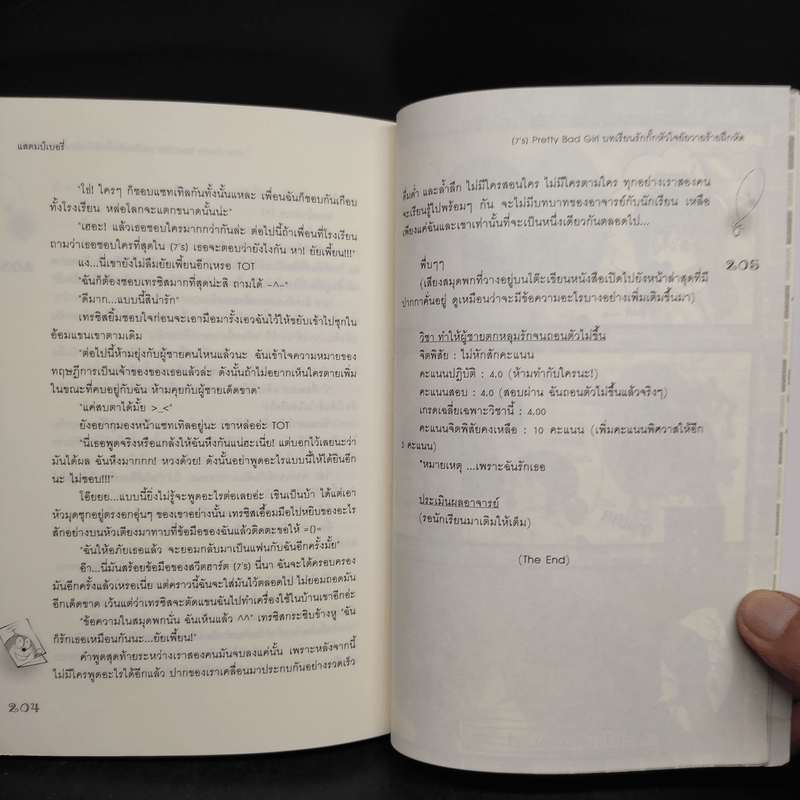 แสตมป์เบอรี่
"โธ่! ใครๆ ก็ชอบแซทเทิลกันทั้งนั้นแหละ เพื่อนฉันก็ชอบกันเกือบ
ทั้งโรงเรียน หล่อโลกจะแตกขนาดนั้นน่ะ"
"เฮอะ! แล้วเธอชอบใครมากกว่ากันล่ะ ต่อไปนี้ถ้าเพื่อนที่โรงเรียน
ถามว่าเธอชอบใครที่สุดใน (7's) เธอจะตอบว่ายังไงกัน หา! ยัยเพี้ยน!!!"
แง...นี่เขายังไม่ลืมยัยเพี้ยนอีกเหรอ TOT
"ฉันก็ต้องชอบเทรซิสมากที่สุดน่ะสิ ถามได้ -^-"
"ดีมาก...แบบนี้สิน่ารัก"
เทรซิสยิ้มชอบใจก่อนจะเอามือมารั้งเอวฉันไว้ให้ขยับเข้าไปซุกใน
อ้อมแขนเขาตามเดิม
"ต่อไปนี้ห้ามยุ่งกับผู้ชายคนไหนแล้วนะ ฉันเข้าใจความหมายของ
ทฤษฎีการเป็นเจ้าของของเธอแล้วล่ะ ดังนั้นถ้าไม่อยากเห็นใครตายเพิ่ม
ในขณะที่คบอยู่กับฉัน ห้ามคุยกับผู้ชายเด็ดขาด"
"แค่สบตาได้มั้ย >_<"
ยังอยากมองหน้าแซทเทิลอยู่นะ เขาหล่ออ่ะ TOT
"นี่เธอพูดจริงหรือแกล้งให้ฉันหึงกันแน่ฮะเนี่ย! แต่บอกไว้เลยนะว่า
มันได้ผล ฉันหึงมากกก! หวงด้วย! ดังนั้นอย่าพูดอะไรแบบนี้ให้ได้ยินอีก
นะ ไม่ชอบ!!!"
โอ๊ยยย...แบบนี้ยิ่งไม่รู้จะพูดอะไรต่อเลยอ่ะ เขินเป็นบ้า ได้แต่เอา
หัวมุดซุกอยู่ตรงอกอุ่นๆ ของเขาอย่างนั้น เทรซิสเอื้อมมือไปหยิบของอะไร
สักอย่างบนหัวเตียงมาทาบที่ข้อมือของฉันแล้วติดตะขอให้ =()=
"ฉันให้อภัยเธอแล้ว จะยอมกลับมาเป็นแฟนกับฉันอีกครั้งมั้ย"
อ๊า...นี่มันสร้อยข้อมือของสวีตฮาร์ต (7's) นี่นา ฉันจะได้ครอบครอง
มันอีกครั้งแล้วเหรอเนี่ย แต่คราวนี้ฉันจะใส่มันไว้ตลอดไป ไม่ยอมถอดมัน
อีกเด็ดขาด เว้นแต่ว่าเทรซิสจะตัดแขนฉันไปทำเครื่องใช้ในบ้านเขาอีกอ่ะ
"ข้อความในสมุดพกนั่น ฉันเห็นแล้ว ^^" เทรซิสกระซิบข้างหู "ฉัน
ก็รักเธอเหมือนกันนะ...ยัยเพี้ยน!"
คำพูดสุดท้ายระหว่างเราสองคนมันจบลงแค่นั้น เพราะหลังจากนี้
ไม่มีใครพูดอะไรได้อีกแล้ว ปากของเราเคลื่อนมาประกบกันอย่างรวดเร็ว
204
(7's) Pretty Bad Girl บทเรียนรักกั๊กหัวใจยัยวายร้ายฝึกหัด
ดื่มด่ำ และล้ำลึก ไม่มีใครสอนใคร ไม่มีใครตามใคร ทุกอย่างเราสองคน
จะเรียนรู้ไปพร้อมๆ กัน จะไม่มีบทบาทของอาจารย์กับนักเรียน เหลือ
เพียงแค่ฉันและเขาเท่านั้นที่จะเป็นหนึ่งเดียวกันตลอดไป...
205
พึ่บๆๆ
(เสียงสมุดพกที่วางอยู่บนโต๊ะเรียนหนังสือเปิดไปยังหน้าล่าสุดที่มี
ปากกาคั่นอยู่ ดูเหมือนว่าจะมีข้อความอะไรบางอย่างเพิ่มเติมขึ้นมา)
วิชา ทำให้ผู้ชายตกหลุมรักจนถอนตัวไม่ขึ้น
จิตพิสัย : ไม่หักสักคะแนน
คะแนนปฏิบัติ : 4.0 (ห้ามทำกับใครนะ!)
คะแนนสอบ : 4.0 (สอบผ่าน ฉันถอนตัวไม่ขึ้นแล้วจริงๆ)
เกรดเฉลี่ยเฉพาะวิชานี้ : 4.00
คะแนนจิตพิสัยคงเหลือ : 10 คะแนน (เพิ่มคะแนนพิศวาสให้อีก
3 คะแนน)
*หมายเหตุ ...เพราะฉันรักเธอ
ประเมินผลอาจารย์
(รอนักเรียนมาเติมให้เต็ม)
(The End)